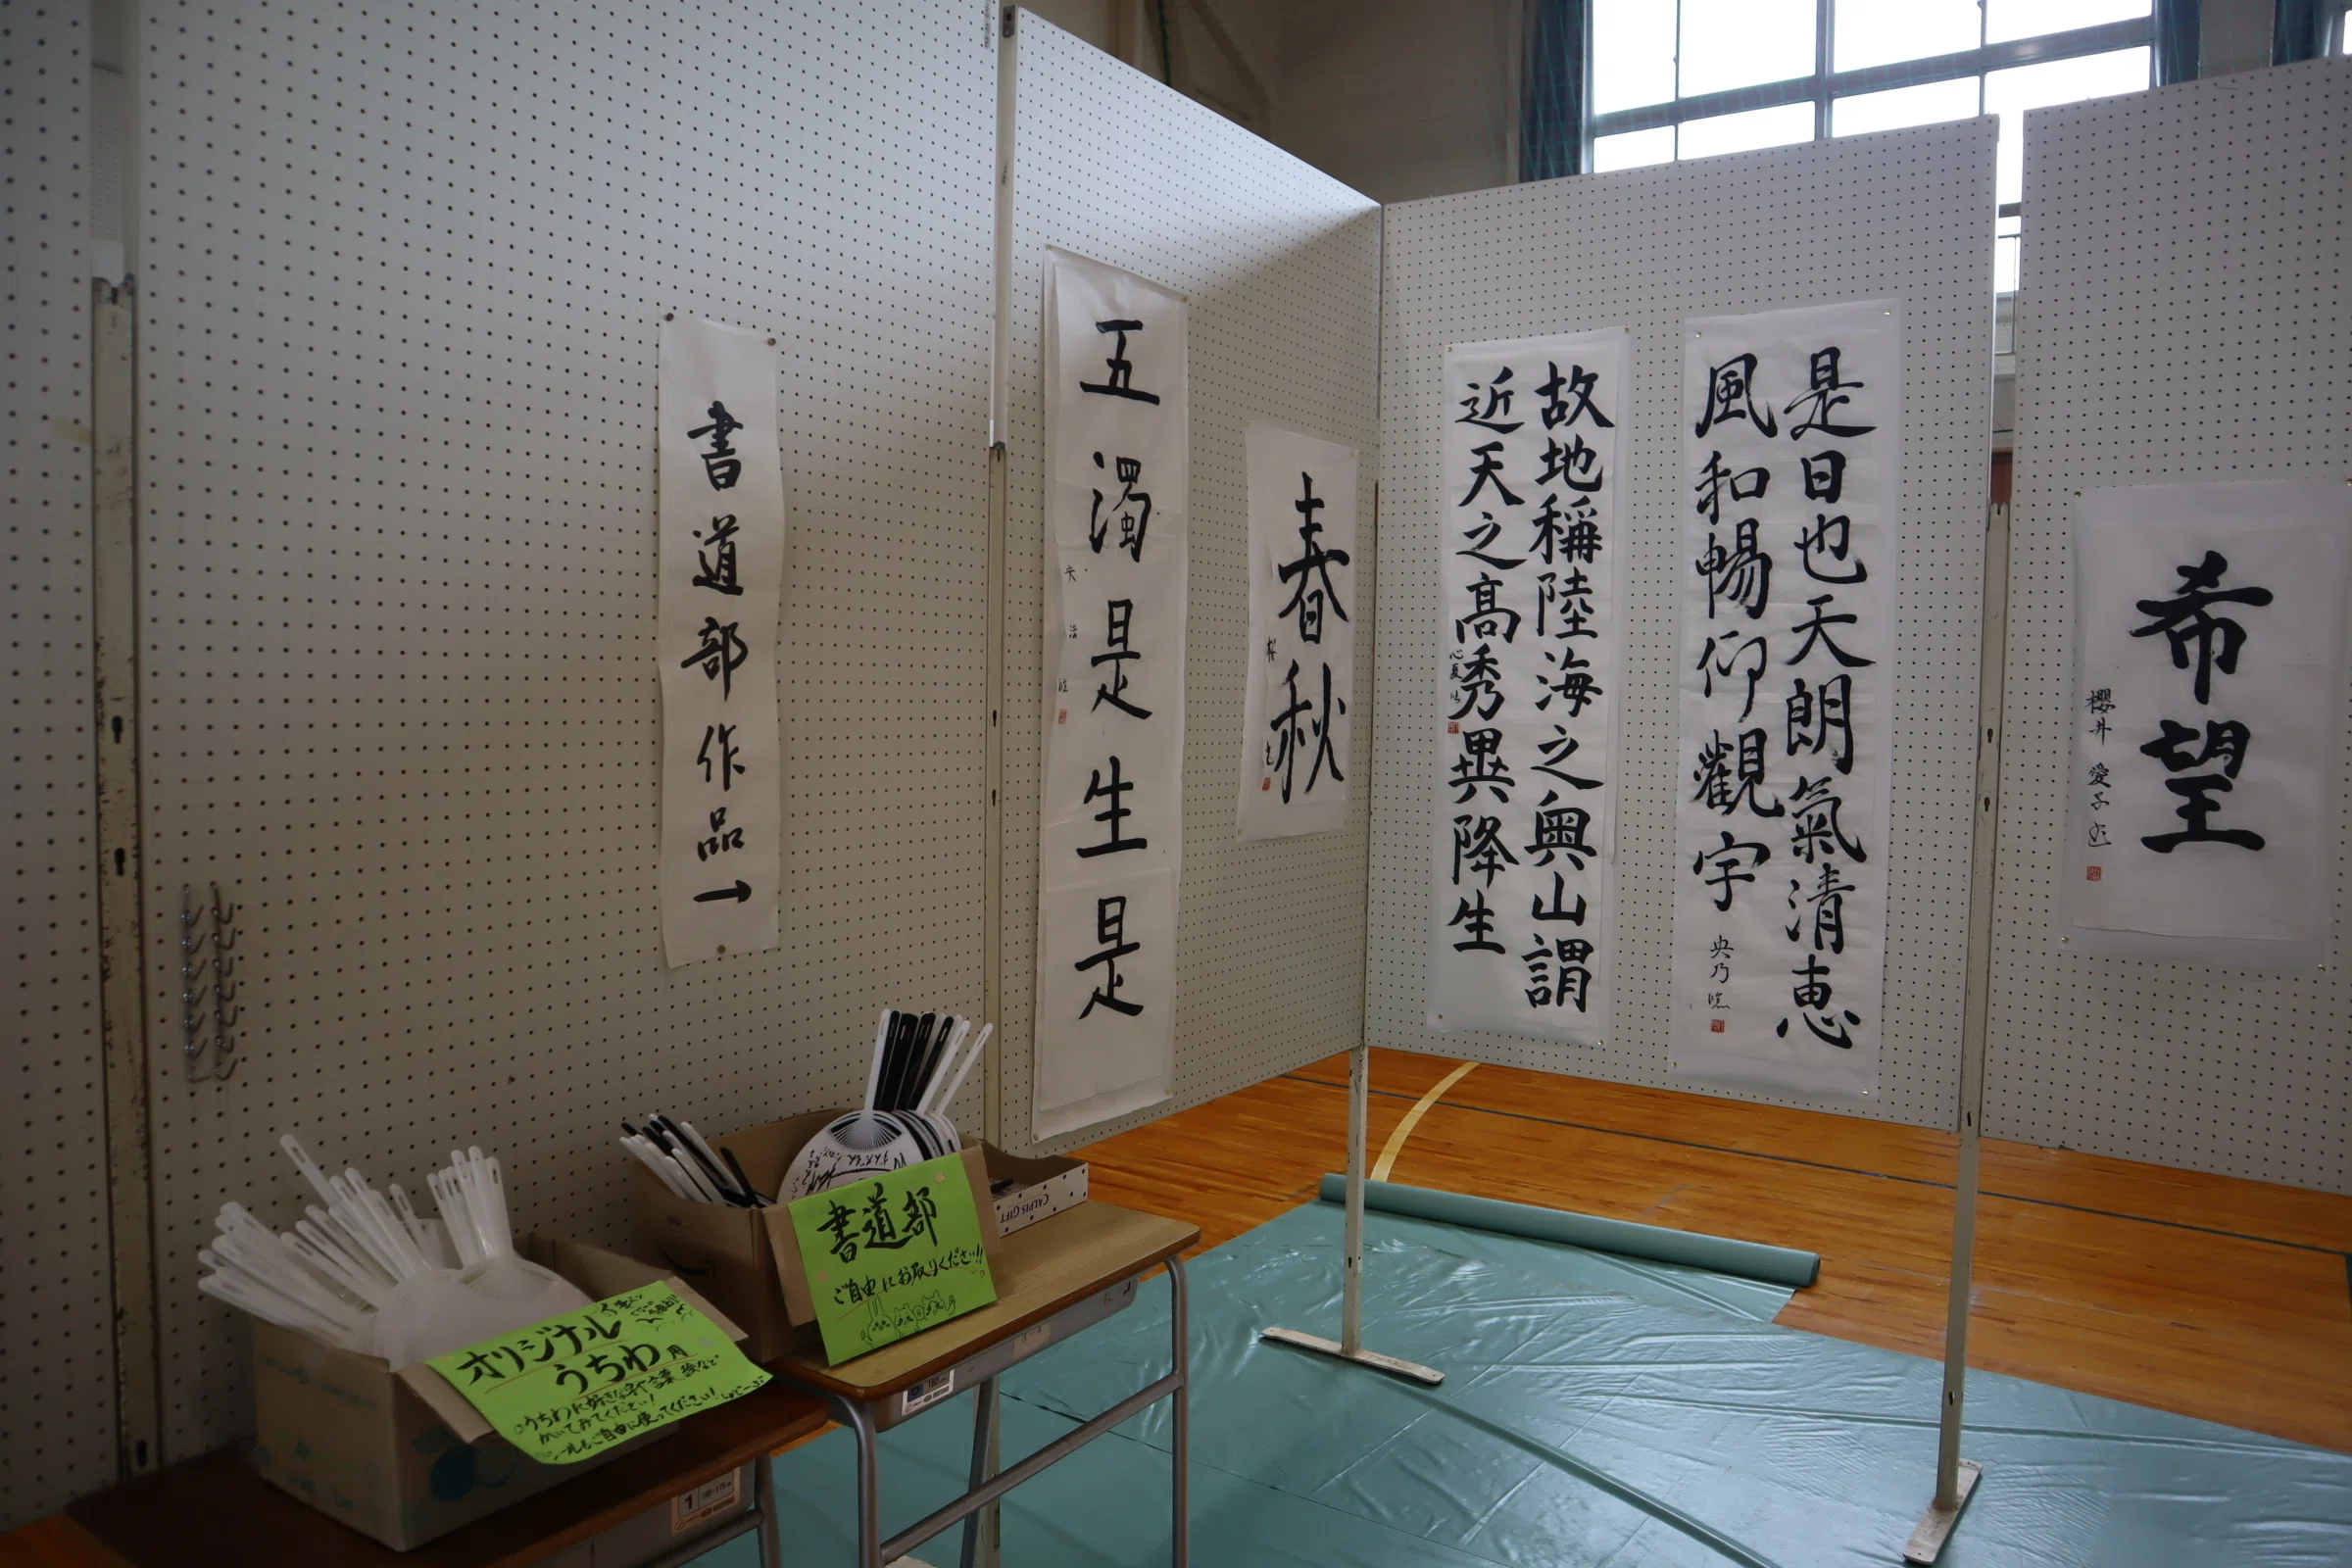 書道部作品→
五濁是生是
春秋
故地稱陸海之奥山謂
近天之高秀異降生
心夏
是日也天朗氣清恵
風和暢仰觀宇
央乃臨
希望
櫻井 愛子
書道部
ご自由にお取りください!!
CALPIS GIFT
オリジナル
うちわ用
うちわに好きな
かいてみてください!
シールもご自由に使ってください!
1